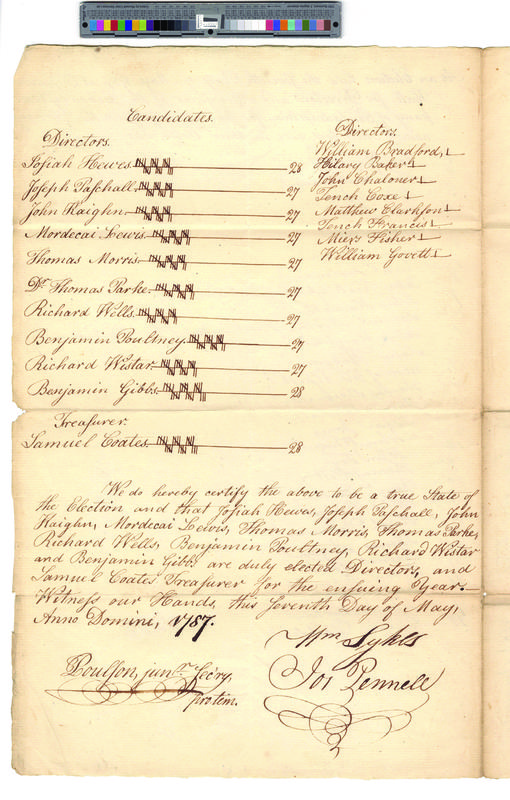 Candidates.
Directors.
Josiah Hewes 28
Joseph Paschall 27
John Kaighn 27
Mordecai Lewis 27
Thomas Morris 27
Dr Thomas Parke 27
Richard Wells 27
Benjamin Poultney 27
Richard Wistar 27
Benjamin Gibbs 28
Treasurer.
Samuel Coates 28
Directors.
William Bradford, 1
Hilary Baker 1
John Chaloner 1
Tench Coxe 1
Matthew Clarkson 1
Tench Francis 1
Miers Fisher 1
William Govett 1
We do hereby certify the above to be a true State of
the Election and that Josiah Hewes, Joseph Paschall, John
Kaighn, Mordecai Lewis, Thomas Morris, Thomas Parke,
Richard Wells, Benjamin Poultney, Richard Wistar
and Benjamin Gibbs are duly elected Directors, and
Samuel Coates Treasurer for the ensuing Year.
Witness our Hands, this Seventh Day of May,
Anno Domini, 1787.
Wm Sykes
Jos Pennell
Poulson, junr. Secry,
protem.